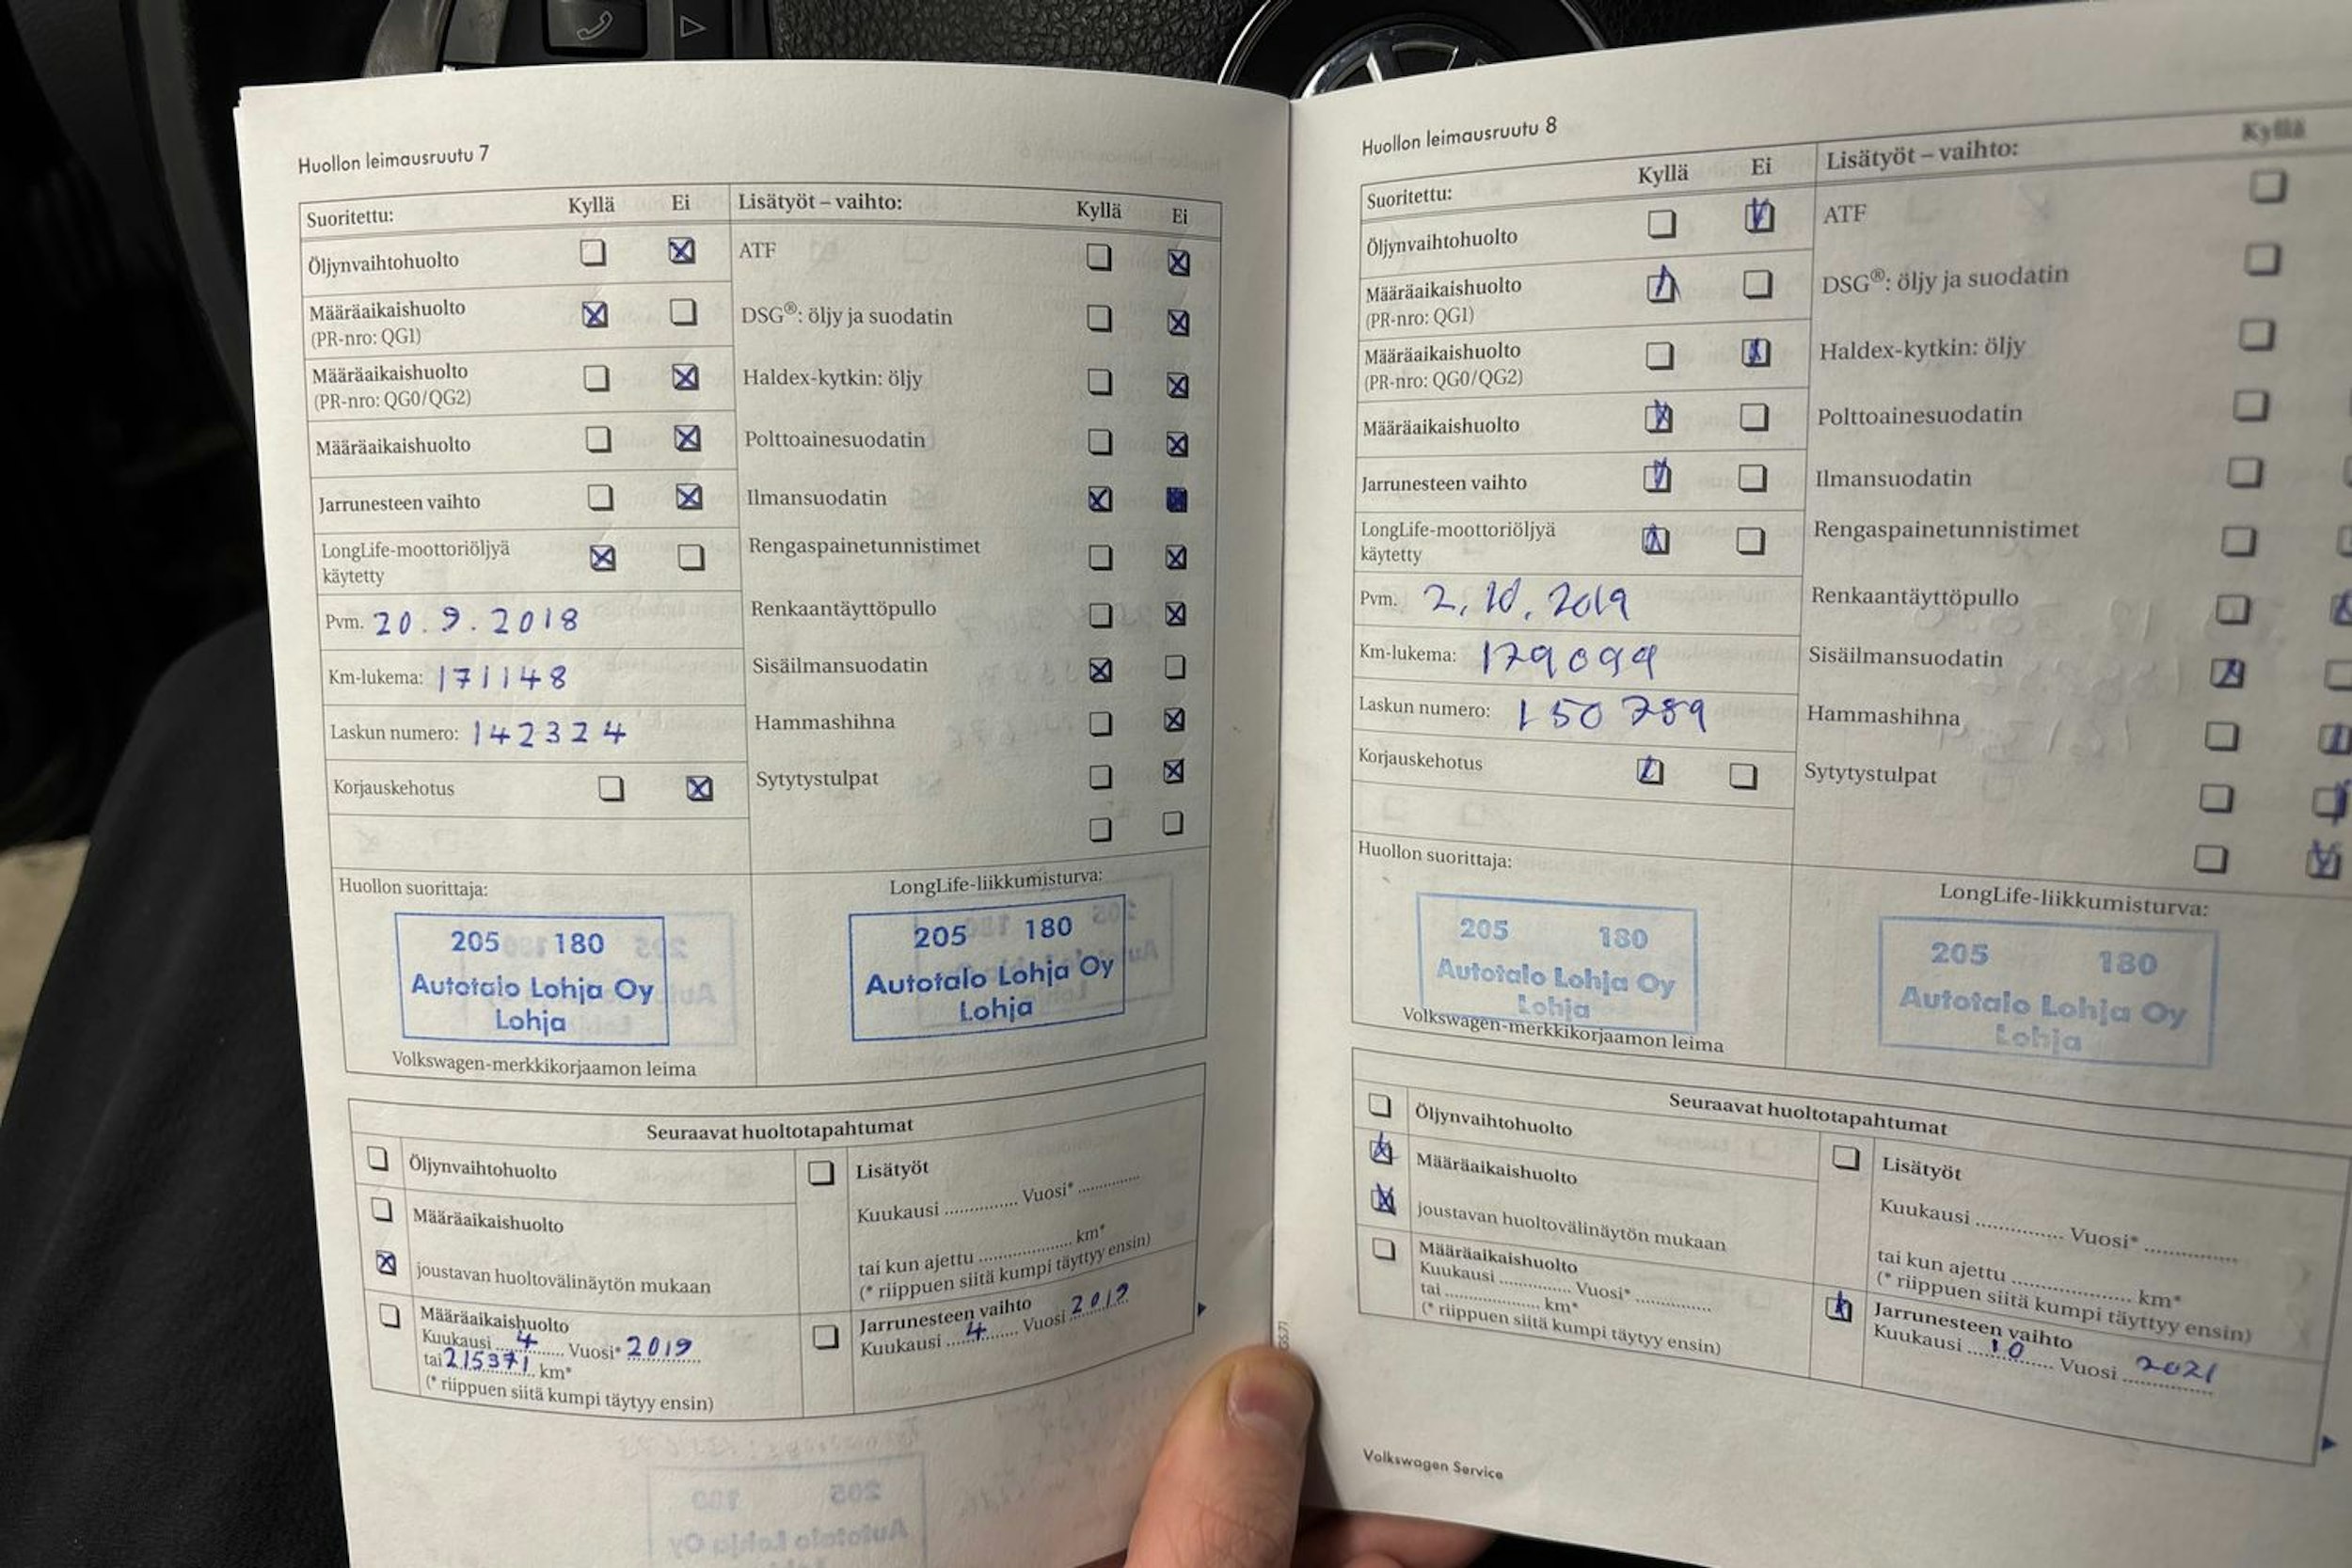 Huollon leimausruutu 7
Suoritettu: Kyllä Ei
Öljynvaihtohuolto
Määräaikaishuolto
(PR-nro: QG1)
Määräaikaishuolto
(PR-nro: QG0/QG2)
Määräaikaishuolto
Jarrunesteen vaihto
LongLife-moottoriöljyä
käytetty
Pvm. 20.9.2018
Km-lukema: 171148
Laskun numero: 142324
Korjauskehotus
Lisätyöt – vaihto: Kyllä Ei
ATF
DSG®: öljy ja suodatin
Haldex-kytkin: öljy
Polttoainesuodatin
Ilmansuodatin
Rengaspainetunnistimet
Renkaantäyttöpullo
Sisäilmansuodatin
Hammashihna
Sytytystulpat
Huollon suorittaja:
205 180
Autotalo Lohja Oy
Lohja
Volkswagen-merkkikorjaamon leima
LongLife-liikkumisturva:
205 180
Autotalo Lohja Oy
Lohja
Seuraavat huoltotapahtumat
Öljynvaihtohuolto
Määräaikaishuolto
joustavan huoltovälinäytön mukaan
Määräaikaishuolto
Kuukausi 4 Vuosi* 2019
tai 215371 km*
(* riippuen siitä kumpi täytyy ensin)
Lisätyöt
Kuukausi ............... Vuosi* ...............
tai kun ajettu .................... km*
(* riippuen siitä kumpi täyttyy ensin)
Jarrunesteen vaihto
Kuukausi 4 Vuosi 2019
Huollon leimausruutu 8
Suoritettu: Kyllä Ei
Öljynvaihtohuolto
Määräaikaishuolto
(PR-nro: QG1)
Määräaikaishuolto
(PR-nro: QG0/QG2)
Määräaikaishuolto
Jarrunesteen vaihto
LongLife-moottoriöljyä
käytetty
Pvm. 2.10.2019
Km-lukema: 179099
Laskun numero: 150789
Korjauskehotus
Lisätyöt – vaihto: Kyllä
ATF
DSG®: öljy ja suodatin
Haldex-kytkin: öljy
Polttoainesuodatin
Ilmansuodatin
Rengaspainetunnistimet
Renkaantäyttöpullo
Sisäilmansuodatin
Hammashihna
Sytytystulpat
Huollon suorittaja:
205 180
Autotalo Lohja Oy
Lohja
Volkswagen-merkkikorjaamon leima
LongLife-liikkumisturva:
205 180
Autotalo Lohja Oy
Lohja
Seuraavat huoltotapahtumat
Öljynvaihtohuolto
Määräaikaishuolto
joustavan huoltovälinäytön mukaan
Määräaikaishuolto
Kuukausi ............... Vuosi* ...............
tai .................... km*
(* riippuen siitä kumpi täytyy ensin)
Lisätyöt
Kuukausi ............... Vuosi* ...............
tai kun ajettu .................... km*
(* riippuen siitä kumpi täyttyy ensin)
Jarrunesteen vaihto
Kuukausi 10 Vuosi 2021
Volkswagen Service